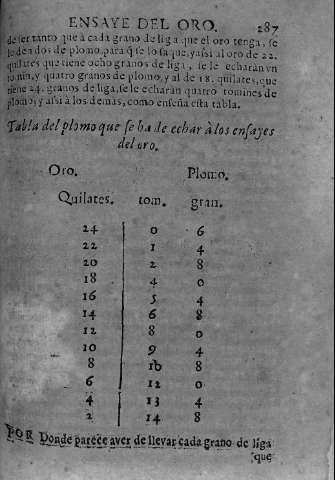 ENSAYE DEL ORO. 287
de ser tanto que à cada grano de liga que el oro tenga, se
le den dos de plomo, para q̃ se lo saque, y assi al oro de 22.
quilates que tiene ocho granos de liga, se le echaràn vn
tomin, y quatro granos de plomo, y al de 18. quilates, que
tiene 24. granos de liga, se le echaràn quatro tomines de
plomo, y assi à los demas, como enseña esta tabla.
Tabla del plomo que se ha de echar à los ensayes
del oro.
Oro. Plomo.
Quilates. tom. gran.
24 0 6
22 1 4
20 2 8
18 4 0
16 5 4
14 6 8
12 8 0
10 9 4
8 10 8
6 12 0
4 13 4
2 14 8
POR Donde parece aver de llevar cada grano de liga
que